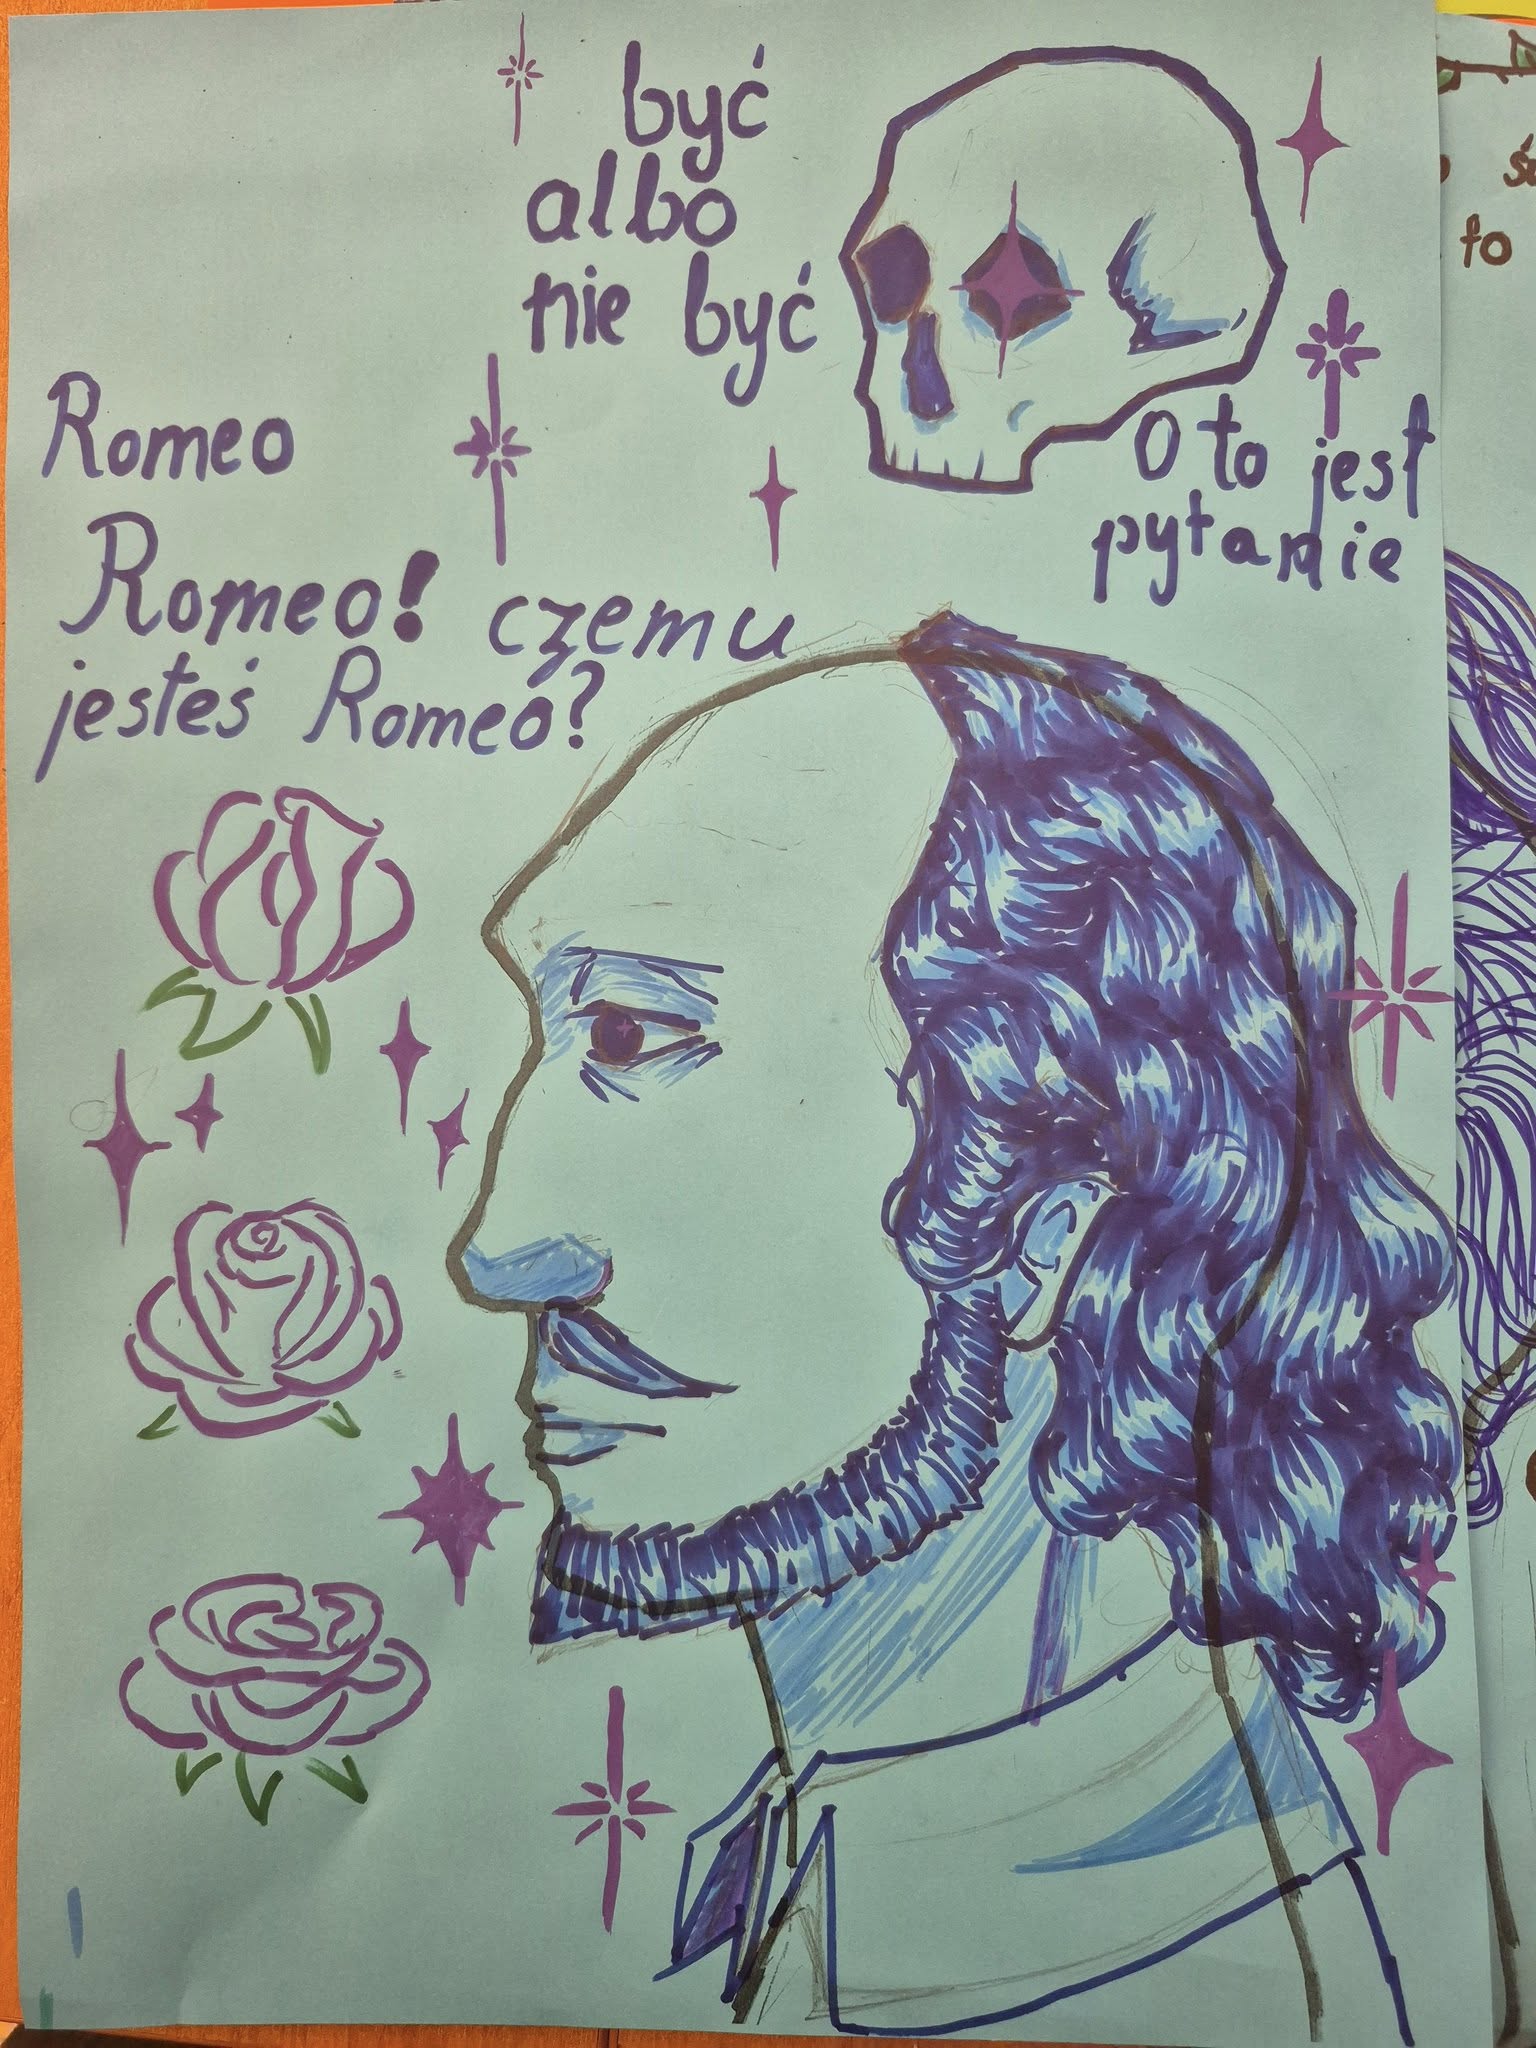 być
albo
nie być
O to jest
pytanie
Romeo
Romeo! czemu
jesteś Romeo?
to